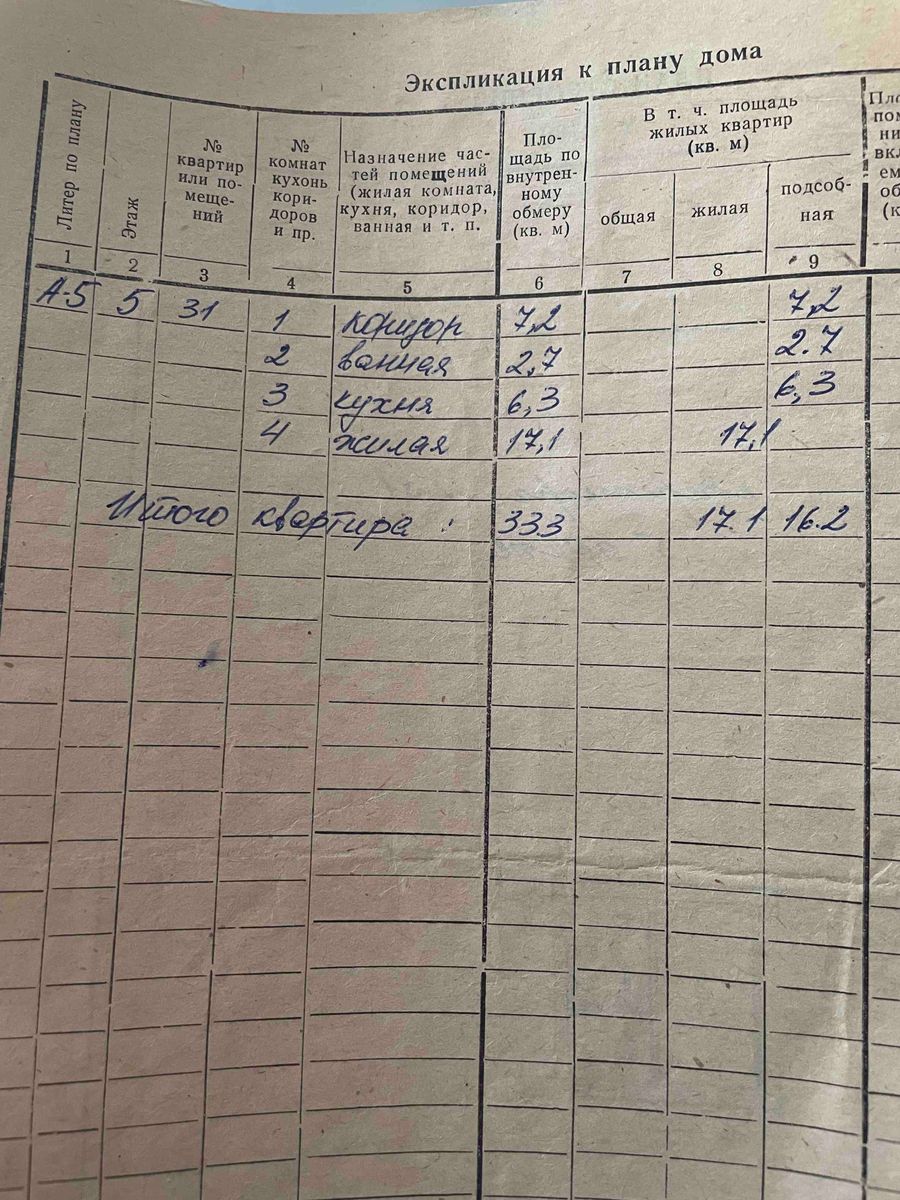 Экспликация к плану дома
Литер по плану
Этаж
№
квартир
или по-
меще-
ний
№
комнат
кухонь
кори-
доров
и пр.
Назначение час-
тей помещений
(жилая комната,
кухня, коридор,
ванная и т. п.
Пло-
щадь по
внутрен-
ному
обмеру
(кв. м)
В т. ч. площадь
жилых квартир
(кв. м)
общая
жилая
подсоб-
ная
1 2 3 4 5 6 7 8 9
А-5 5 31 1 коридор 7,2 7,2
2 ванная 2,7 2.7
3 кухня 6,3 6,3
4 жилая 17,1 17,1
Итого квартира : 33.3 17.1 16.2